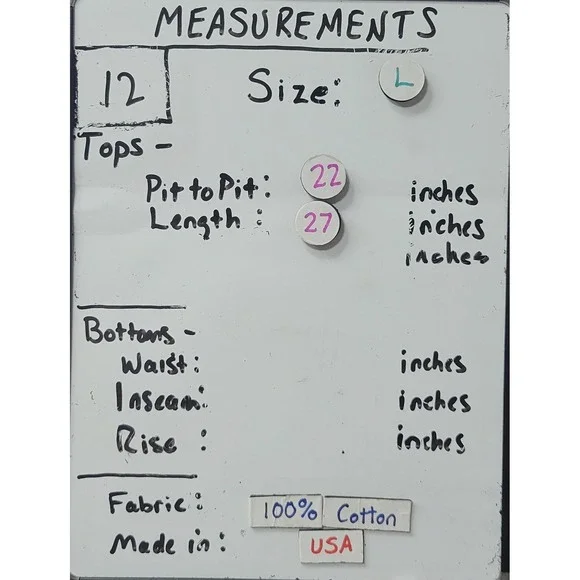 MEASUREMENTS
12 Size: L
Tops -
Pit to Pit: 22 inches
Length: 27 inches
inches
Bottoms -
Waist: inches
Inseam: inches
Rise: inches
Fabric: 100% Cotton
Made in: USA